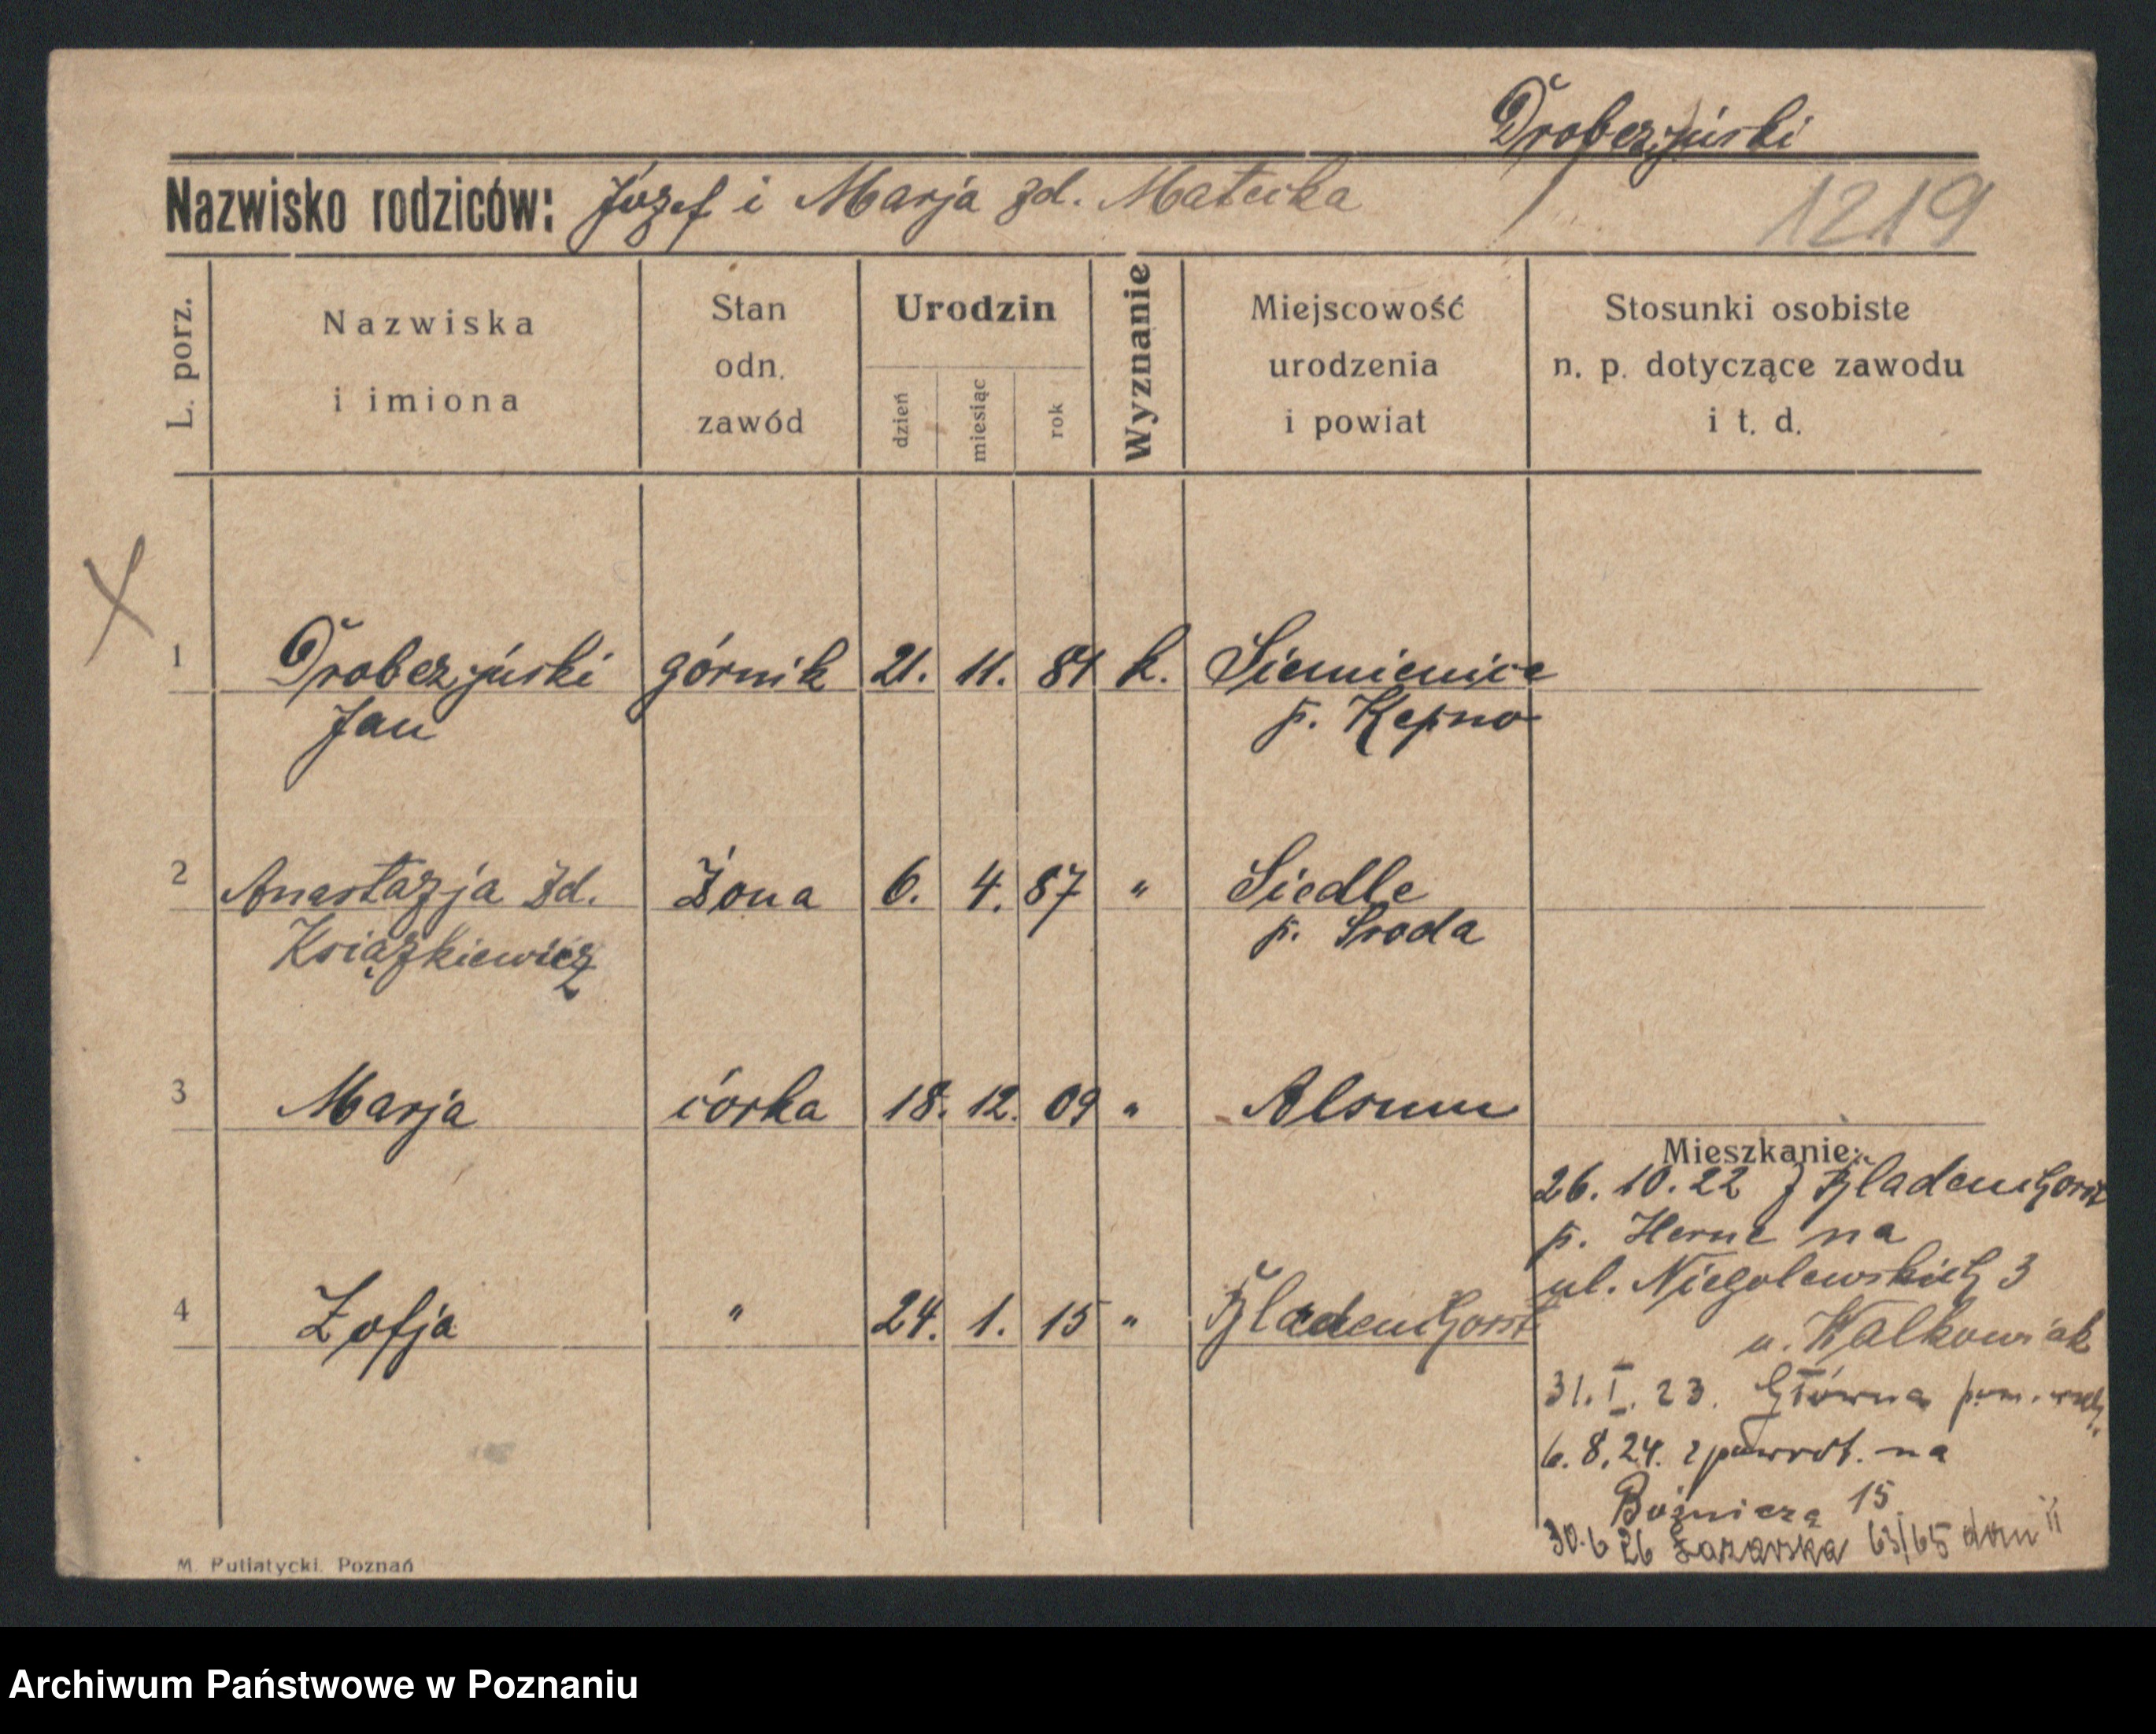 Drobczyński
Nazwisko rodziców: Józef i Marja zd. Małecka
1219
L. porz.
Nazwiska
i imiona
Stan
odn.
zawód
Urodzin
dzień
miesiąc
rok
Wyznanie
Miejscowość
urodzenia
i powiat
Stosunki osobiste
n. p. dotyczące zawodu
i t. d.
X
1 Drobczyński górnik 21. 11. 81 k. Siemienice
Jan p. Kępno
2 Anastazja zd. żona 6. 4. 87 " Siedle
Książkiewicz p. Sroda
3 Marja córka 18. 12. 09 " Alsum
4 Zofja " 24. 1. 15 " Bladenhorst
Mieszkanie:
26. 10. 22 z Bladenhorst
p. Herne na
ul. Niegolewskich 3
u. Walkowiak
31. I. 23. Główna pow. wsch.
6. 8. 24. z powrot. na
Bóżnicza 15
30. 6 26 Łazarska 63/65 dom II
M. Putiatycki. Poznań
Archiwum Państwowe w Poznaniu